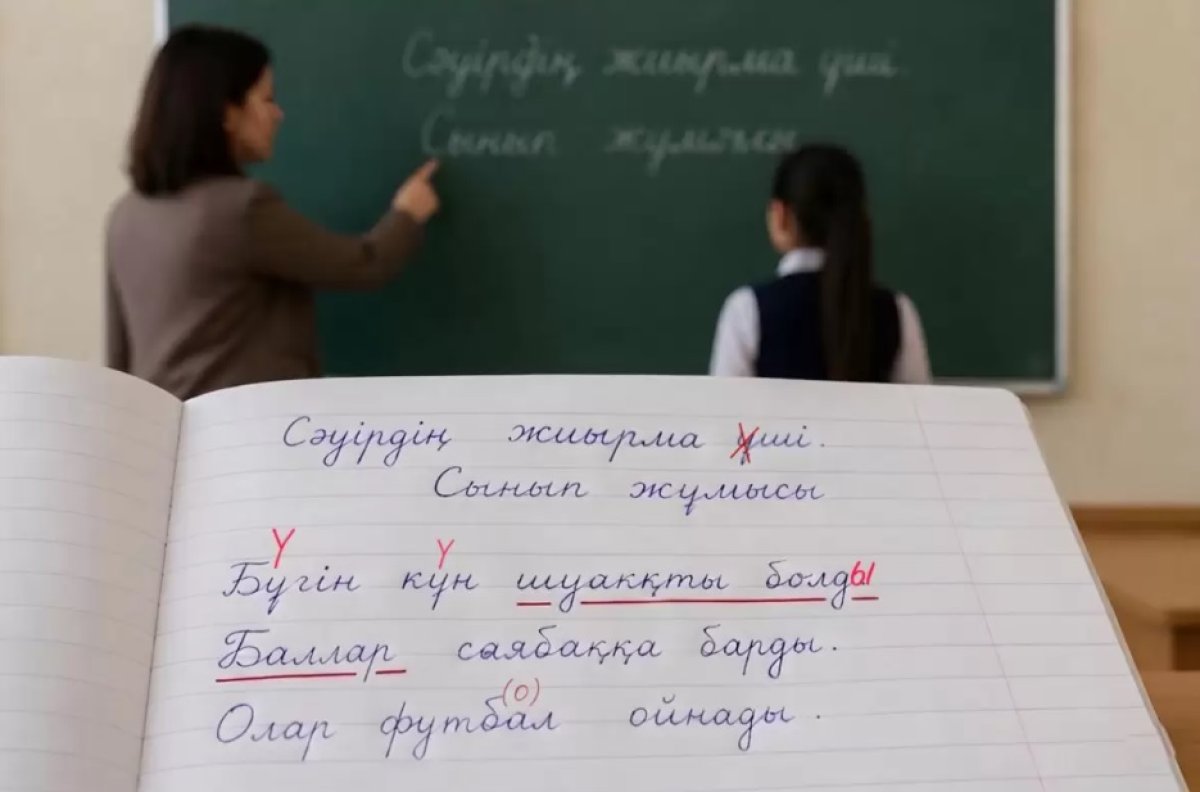 Сәуірдің жиырма үші.
Сынып жұмысы
Сәуірдің жиырма үші.
Сынып жұмысы
Ү Ү
Бүгін күн шуаққты болды
Баллар саябаққа барды.
(о)
Олар футбал ойнады.